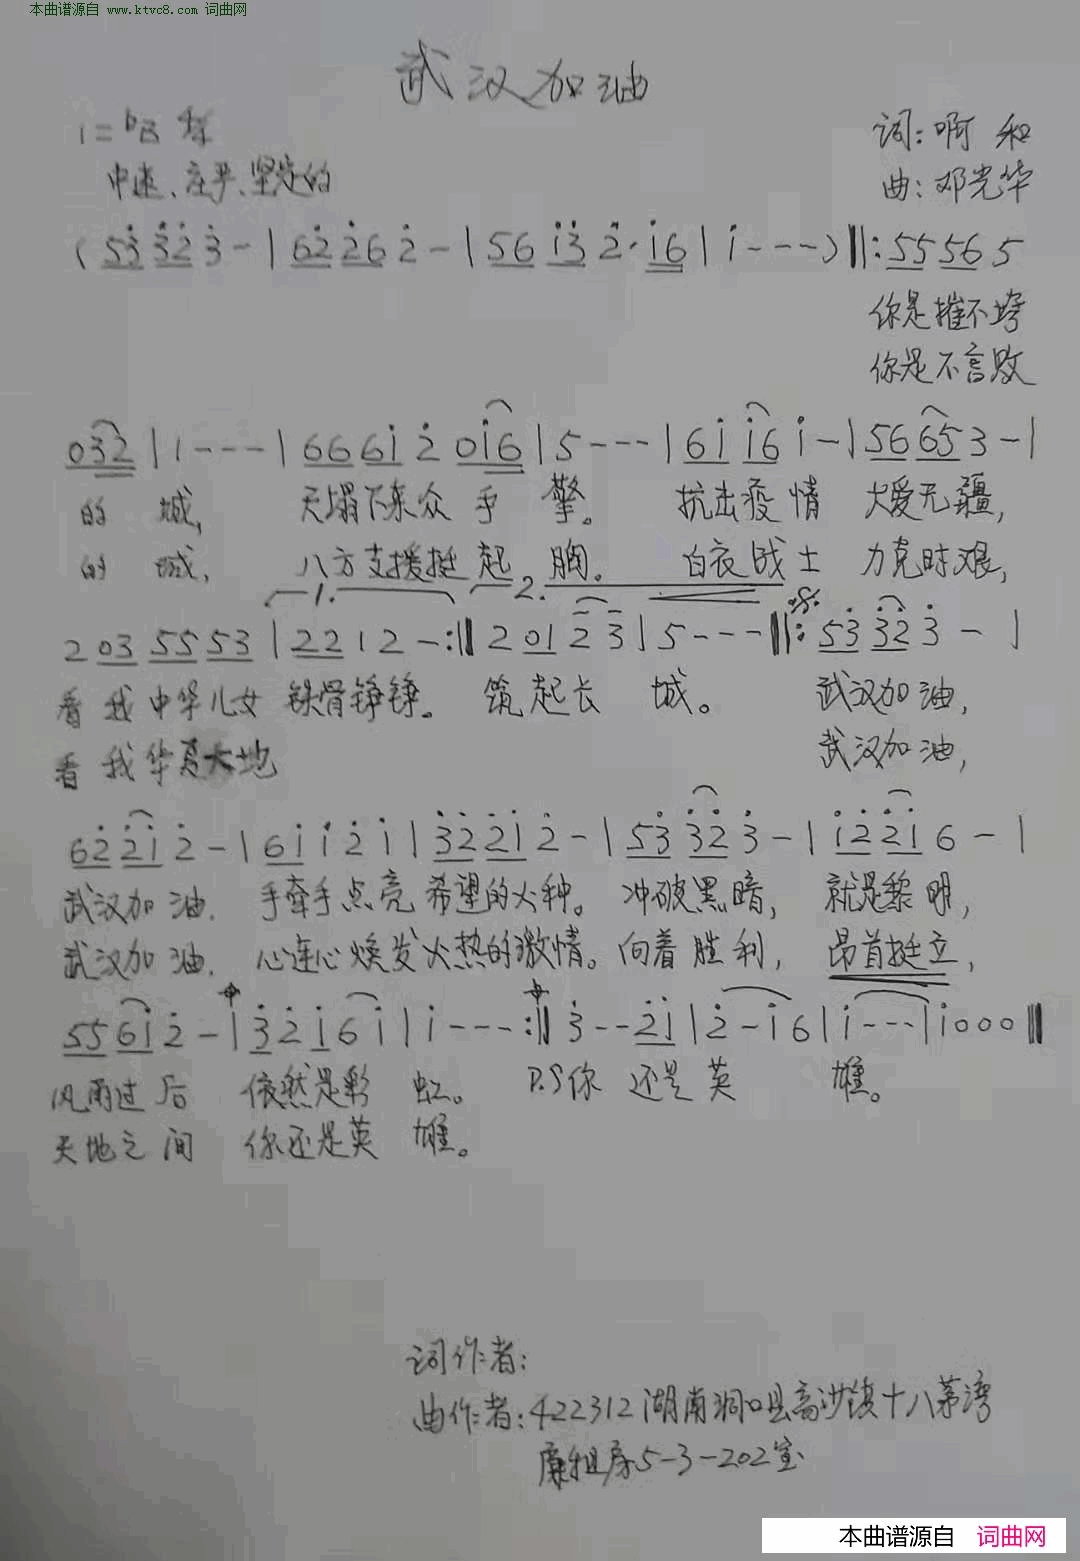 本曲谱源自 www.ktvc8.com 词曲网
武汉加油
1=ᵇB 4/4
中速、庄严、坚定的
词：啊 和
曲：邓光华
(53 32 3 - | 62 26 2 - | 56 13 2· 16 | 1 - - - ) ‖: 55 56 5
你是摧不垮
你是不言败
032 | 1 - - - | 66 61 2 016 | 5 - - - | 61 16 1 - | 56 65 3 - |
的 城， 天塌下来众 手 擎。 抗击疫 情 大爱无疆，
的 城， 八方支援挺 起 胸。 白衣战士 力克时艰，
1. 2.
2 03 55 53 | 22 1 2 - :‖ 2 01 2 3 | 5 - - - ‖: 53 32 3 - |
看 我 中华儿女 铁骨铮铮。 筑 起长 城。 武汉加油，
看 我 华夏大地 武汉加油，
62 21 2 - | 61 1 2 1 | 32 21 2 - | 53 32 3 - | 12 21 6 - |
武汉加 油， 手牵手点亮 希望的火种。 冲破黑暗， 就是黎明，
武汉加 油， 心连心焕发火热的激情。 向着胜利， 昂首挺立，
55 61 2 - | 3 2 1 6 1 | 1 - - - :‖ 3 - - 21 | 2 - 1 6 | 1 - - - | 1 0 0 0 ‖
风雨过后 依然是彩 虹。 D.S 你 还是 英 雄。
天地之间 你还是英 雄。
词作者：
曲作者：422312 湖南洞口县高沙镇十八茅湾
廉租房5-3-202室
本曲谱源自 词曲网